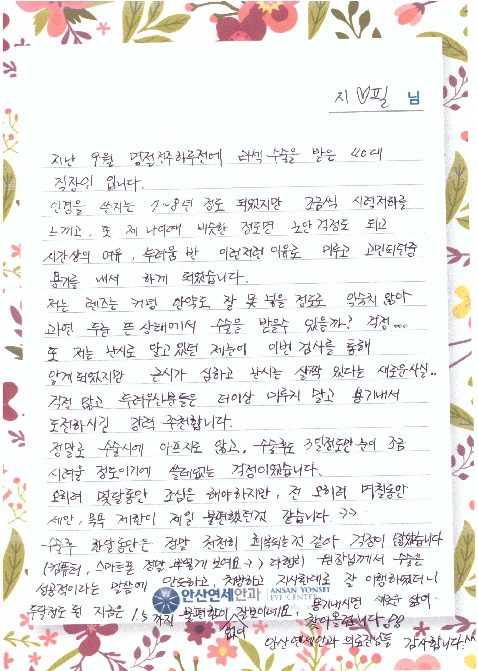 지♡필 님
지난 9월 명절전주하루전에 라섹 수술을 받은 40대
직장인 입니다.
안경을 쓴지는 7~8년 정도 되었지만 조금씩 시력저하를
느끼고, 또 제 나이에 비슷한 정도면 노안 걱정도 되고
시간상의 여유, 두려움 반 이런저런 이유로 미루고 고민되던중
용기를 내서 하게 되었습니다.
저는 렌즈는 커녕 안약도 잘 못 넣을 정도로 익숙치 않아
과연 두눈 뜬 상태에서 수술을 받을수 있을까? 걱정...
또 저는 난시로 알고있던 제눈이 이번 검사를 통해
알게 되었지만 근시가 심하고 난시는 살짝 있다는 새로운사실..
걱정 많고 두려우신분들은 더이상 미루지 말고 용기내서
도전하시길 강력 추천합니다.
정말로 수술시에 아프지도 않고, 수술후도 3일정도만 눈이 조금
시려울 정도이기에 쓸데없는 걱정이었습니다.
오히려 몇달동안 조심은 해야하지만, 전 오히려 며칠동안
세안, 목욕 제한이 제일 불편했던것 같습니다. >>
수술후 한달동안은 정말 천천히 회복되는것 같아 걱정이 많았습니다
(컴퓨터, 스마트폰 정말 뿌옇게 보여요>>) 다행히 원장님께서 수술은
성공적이라는 말씀에 안도하고, 처방하고 지시한대로 잘 이행하였더니
두달정도 된 지금은 1.5 까지 불편함이 잘보이네요. 용기내시면 새로운 삶이
없이 찾아올겁니다
안산연세안과 의료진분들 감사합니다^^
안산연세안과 ANSAN YONSEI
EYE CENTER